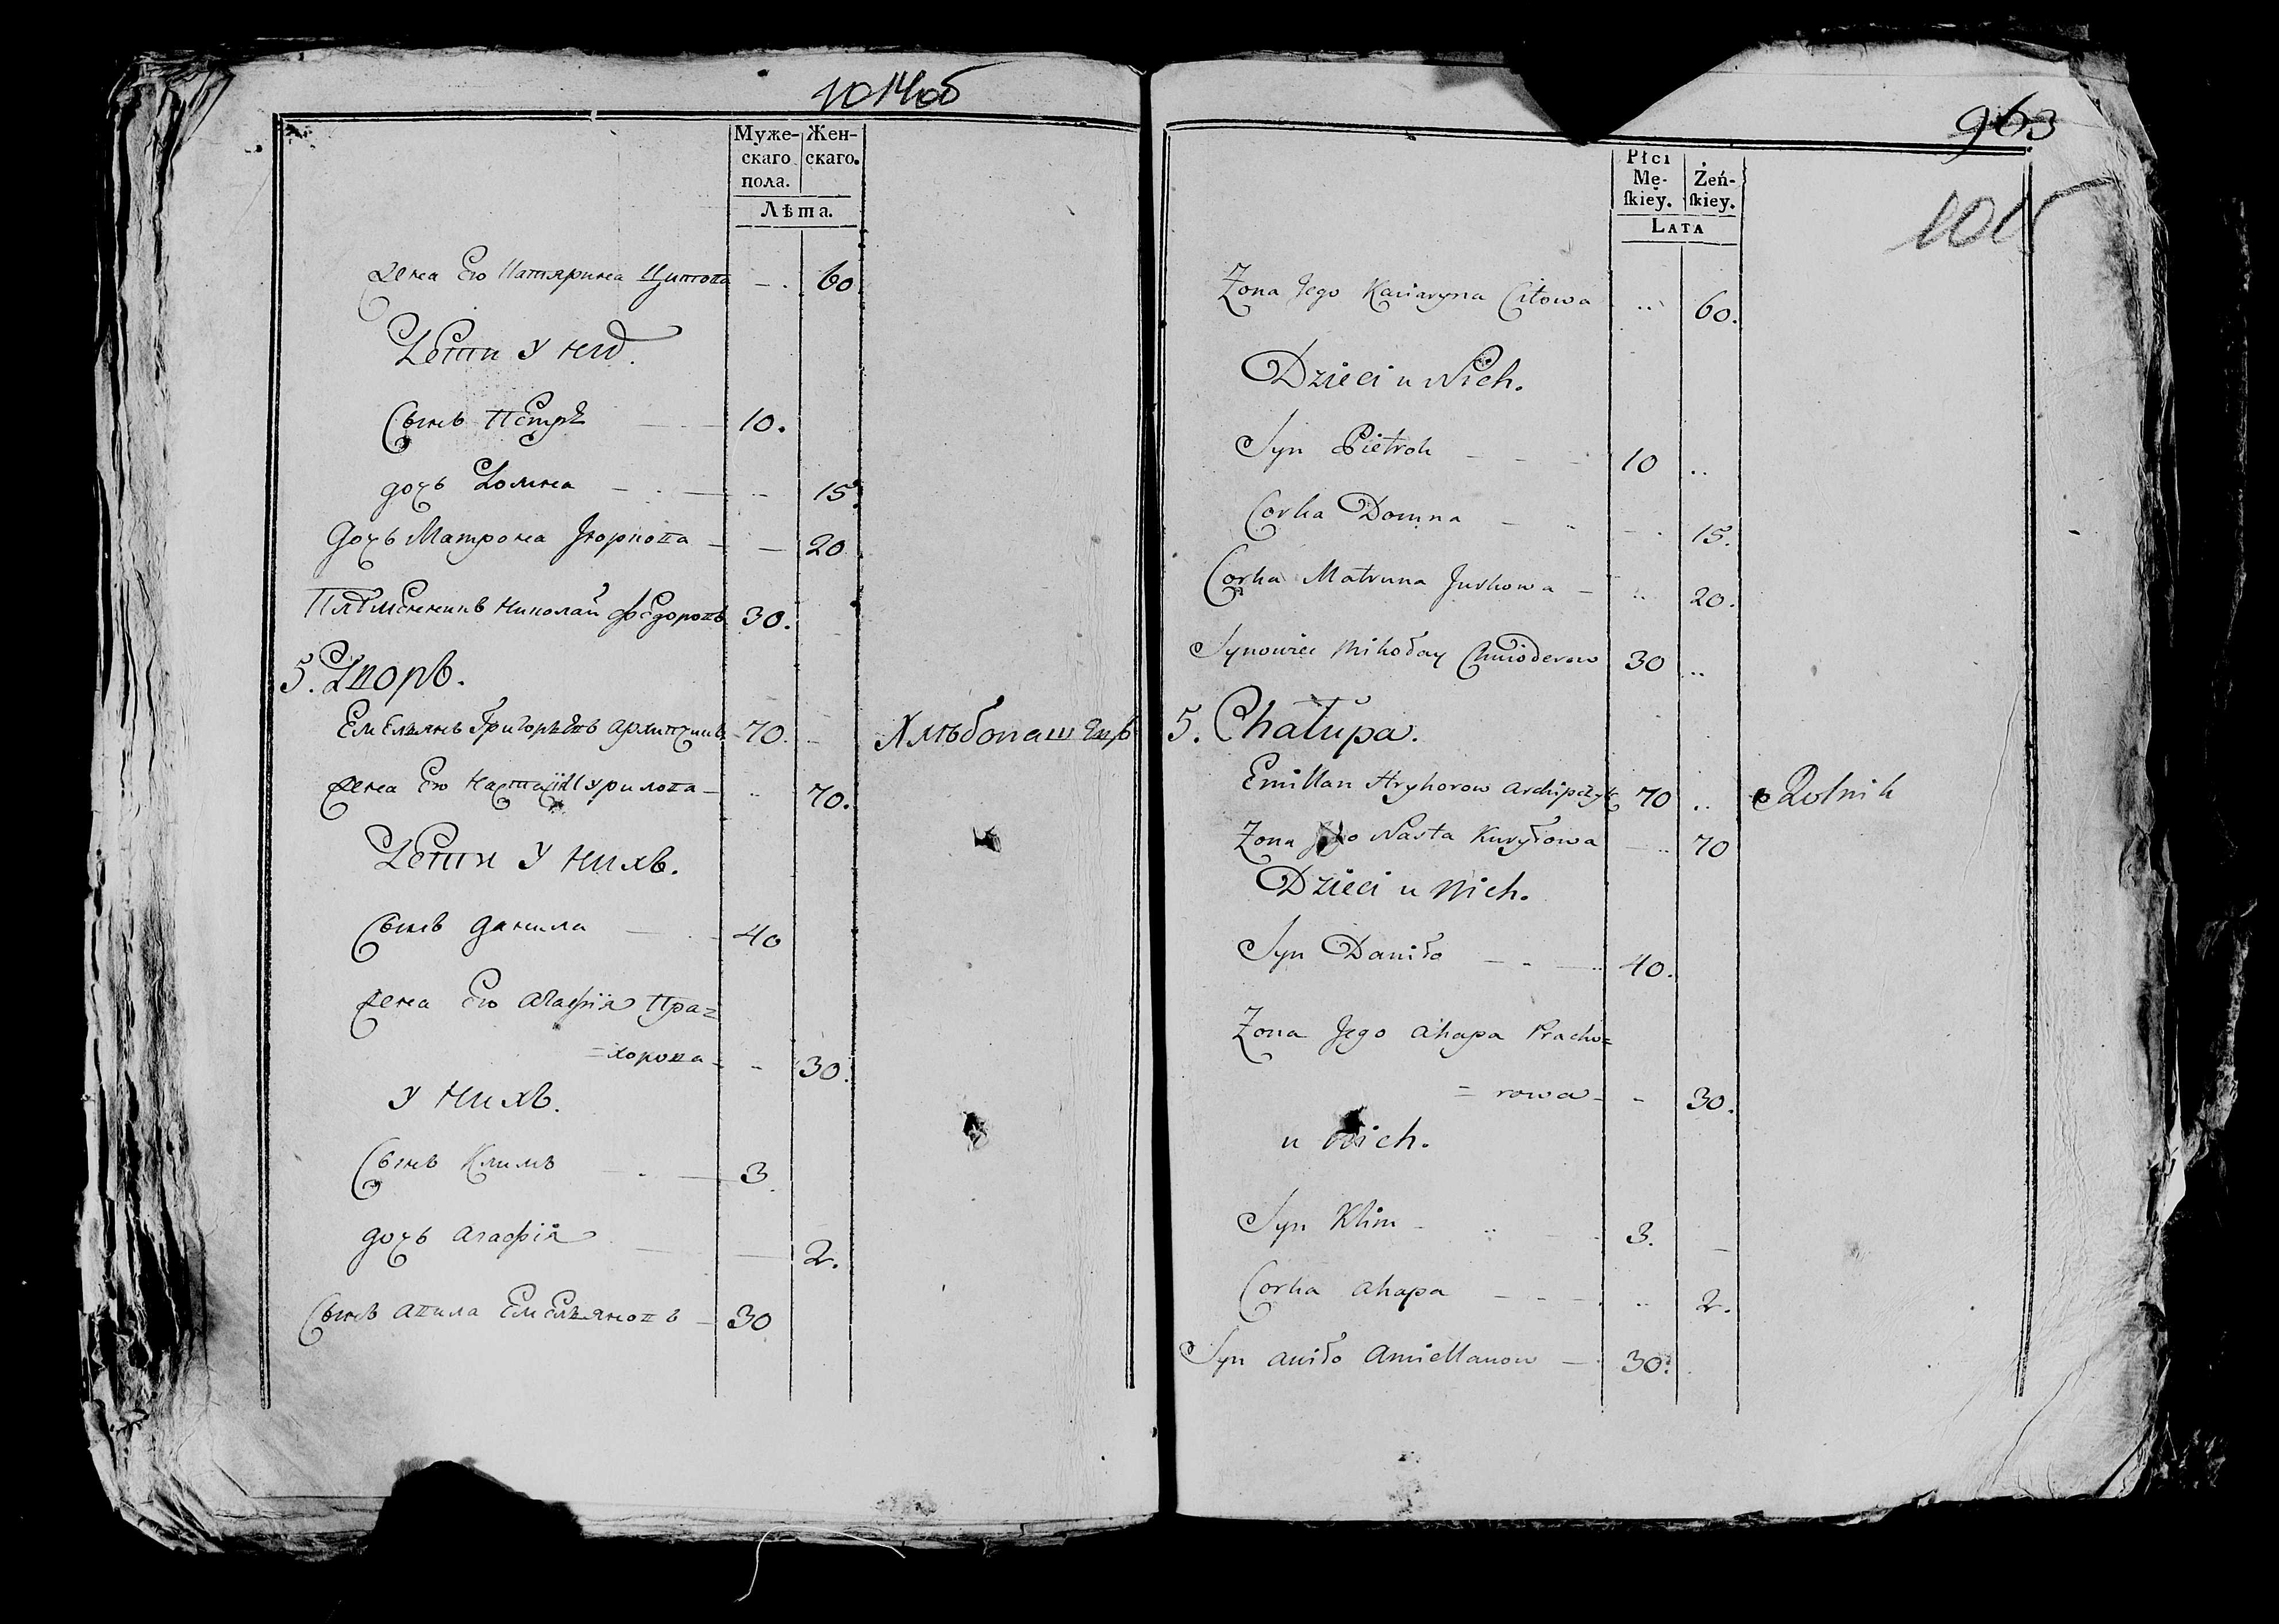 1014об
Муже- Жен-
скаго скаго.
пола.
Лѣта.
Жена Его Катярина Цитова 60
Дети У них.
Сынъ Петръ 10.
дочь Домна 15.
дочь Матрона Юркова 20
Племенникъ Николай Федоровъ 30.
5. Дворъ.
Емельянъ Григорьевъ Архипчикъ 70. Хлѣбопашецъ
Жена Его Настація Курилова 70.
Дети У нихъ.
Сынъ Данила 40
Жена Его Агафія Пра=
=хорова 30.
У нихъ.
Сынъ Климъ 3.
дочь Агафія 2.
Сынъ Анила Емельяновъ 30
963
Płci
Mę- Żeń-
skiey. skiey.
LATA
Zona Jego Kaciaryna Citowa 60.
Dzieci u Nich.
Syn Pietrok 10
Corka Domna 15.
Corka Matruna Jurkowa 20.
Synowiec Mikołay Chwioderow 30
5. Chałupa.
Emillan Hryhorow Archipczyk 70 Rolnik
Zona Jego Nasta Kuryłowa 70
Dzieci u Nich.
Syn Daniło 40.
Zona Jego Ahapa Pracho=
=rowa 30.
u Nich.
Syn Klim 3.
Corka Ahapa 2.
Syn Aniło Amiellanow 30.